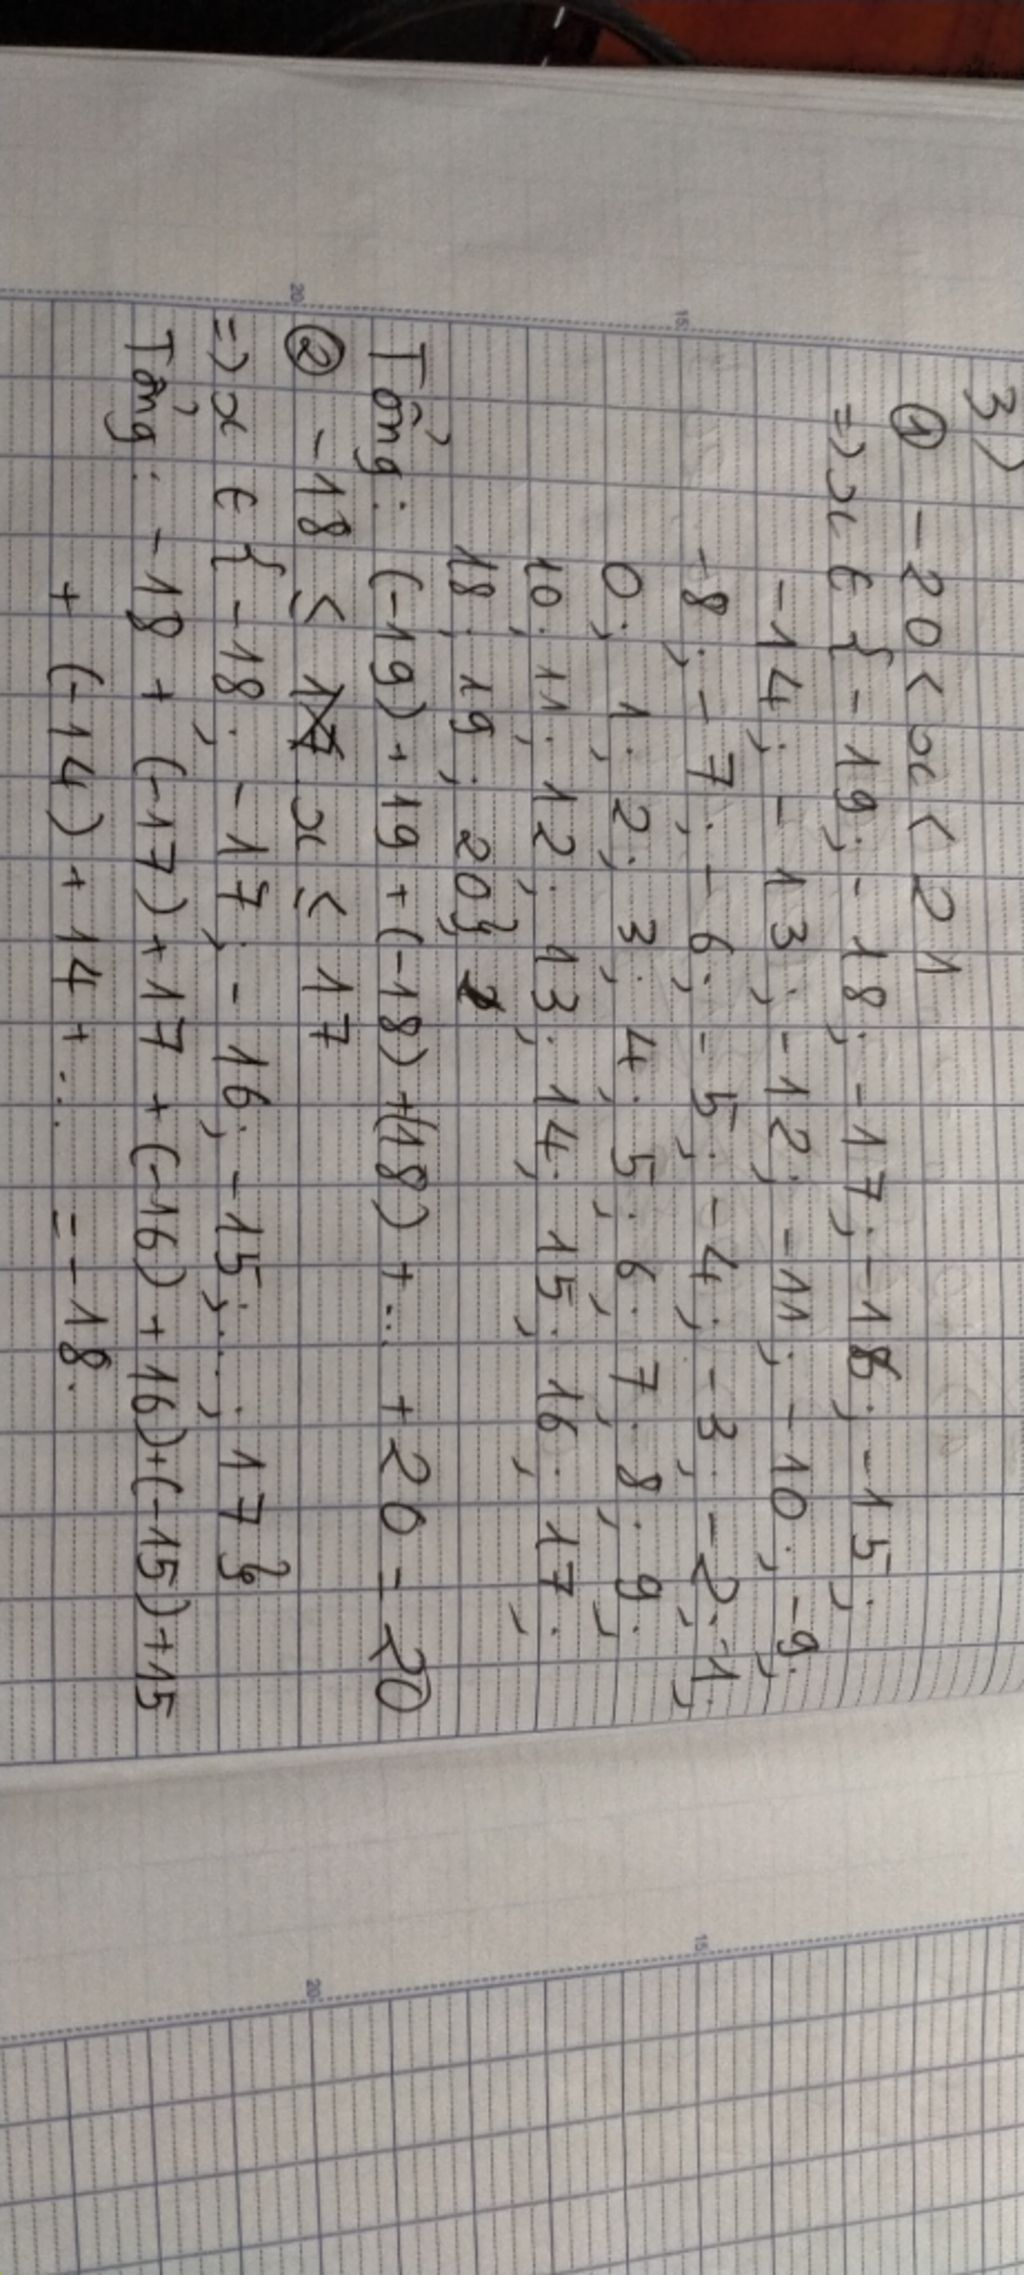 3)
① -20 < x < 21
=> x ∈ { -19; -18; -17; -16; -15;
-14; -13; -12; -11; -10; -9;
-8; -7; -6; -5; -4; -3; -2; -1;
0; 1; 2; 3; 4; 5; 6; 7; 8; 9;
10; 11; 12; 13; 14; 15; 16; 17;
18; 19; 20}
Tổng: (-19) + 19 + (-18) + (18) + ... + 20 = 20
② -18 ≤ x ≤ 17
=> x ∈ { -18; -17; -16; -15; ...; 17}
Tổng: -18 + (-17) + 17 + (-16) + 16) + (-15) + 15
+ (-14) + 14 + ... = -18.
15
20
15
20